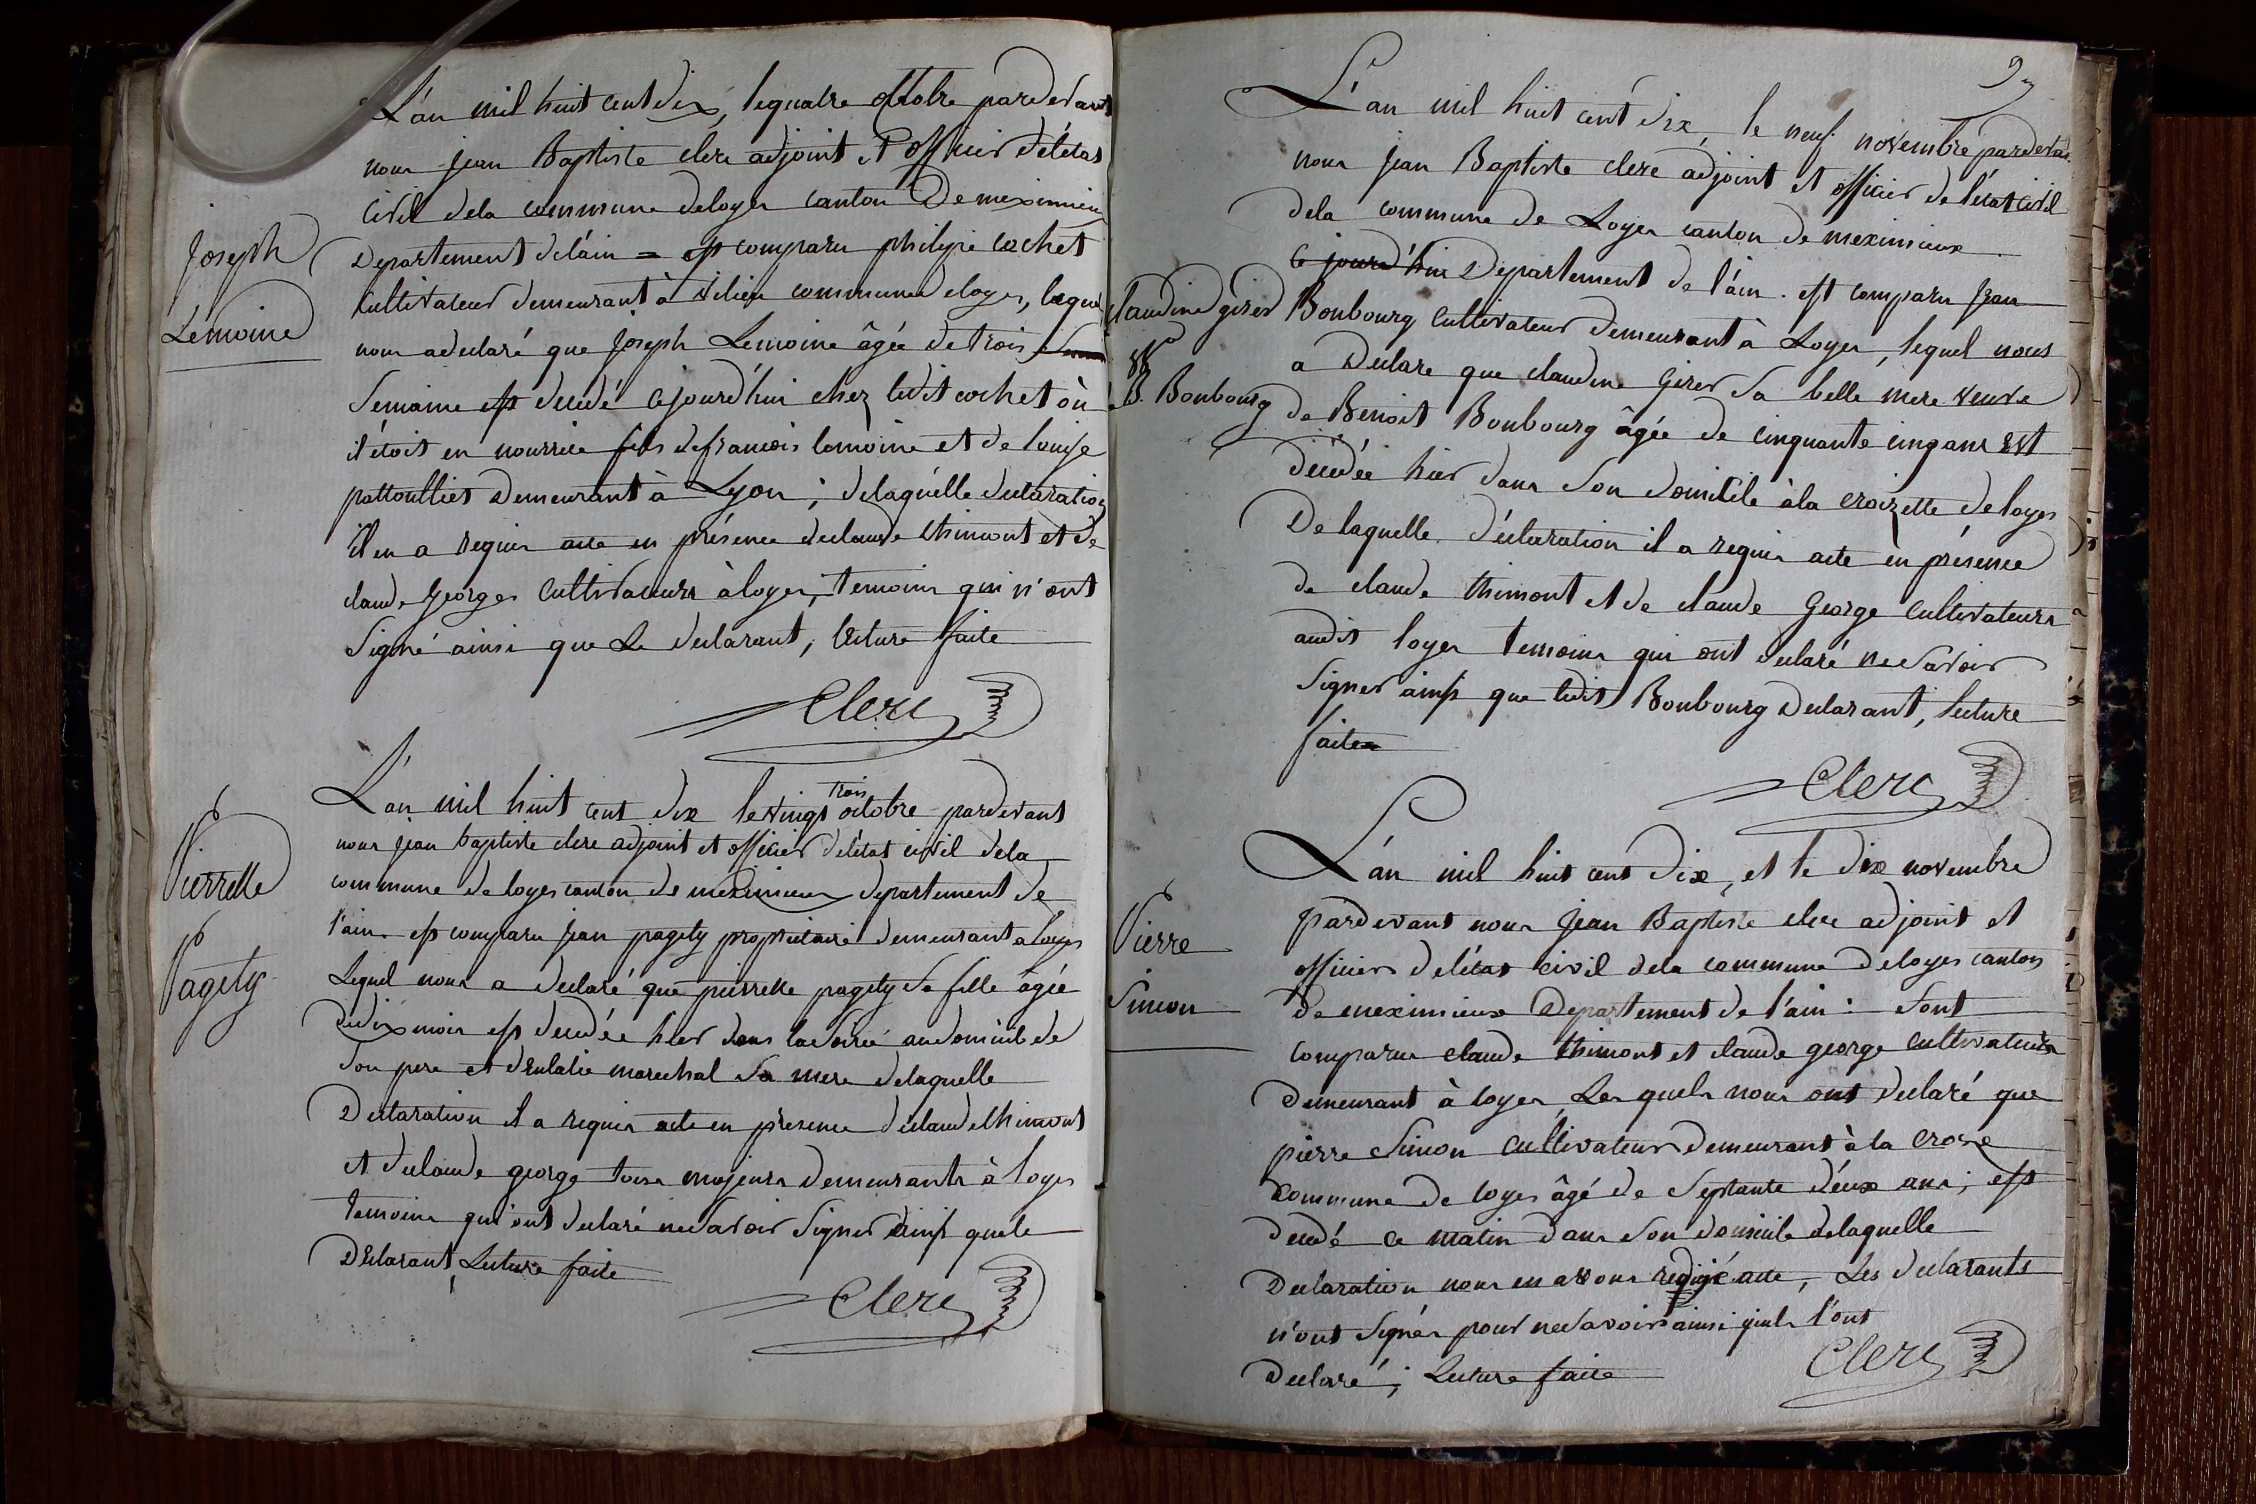 Joseph
Lémoine
L'an mil huit cent dix, le quatre octobre pardevant
nous jean Baptiste clerc adjoint et officier de l'état
Civil dela commune deloyes canton De meximieux
Departement de l'ain = est comparu philipe cochet
Cultivateur demeurant à vilieu commune deloyes, lequel
nous adeclaré que joseph Lemoine âgée de trois
Semaine est decedé cejourd'hui chez ledit cochet où
il étoit en nourrice fils defrancois lemoine et de louise
pattoulliet Demeurant à Lyon ; delaquelle declaration
il en a requis acte en présence declaude thimont et de
claude Georges Cultivateurs à loyes, temoins qui n'ont
Signé ainsi que Le declarant, lecture faite
Clerc
Pierrette
Pagety
L'an mil huit cent dix le vingt trois octobre pardevant
nous jean baptiste clerc adjoint et officier de l'état civil dela
commune de loyes canton de meximieux departement de
l'ain. est comparu jean pagety propriétaire demeurant a loyes
Lequel nous a declaré que pierrette pagety Sa fille âgée
de dix mois est decedée hier dans la Soirée au domicile de
Son pere et d'Eulalie marechal Sa mere delaquelle
Declaration il a requis acte en presence declaude thimont
et declaude george tous majeurs demeurants à loyes
temoins qui ont declaré ne Savoir Signer ainsi quele
Déclarant, Lecture faite
Clerc
9
L'an mil huit cent dix, le neuf novembre pardevant
nous jean Baptiste clerc adjoint et officier de l'état civil
dela commune de Loyes canton de meximieux
ce jourd'hui Département de l'ain. est comparu jean
Claudine girer
Ve
B. Bonbourg
Bonbourg Cultivateur demeurant à Loyes, lequel nous
a Déclaré que claudine Girer Sa belle mere veuve
de Benoit Bonbourg âgée de cinquante cinq ans est
décédée hier dans Son domicile àla croizette deloyes
De laquelle déclaration il a requis acte en présence
de claude thimont et de claude George Cultivateurs
audit loyes temoins qui ont declaré ne Savoir
Signer ainsi que ledit Bonbourg Declarant, lecture
faite
Clerc
Pierre
Simon
L'an mil huit cent dix, et le dix novembre
pardevant nous jean Baptiste clerc adjoint et
officier de l'état civil dela commune deloyes canton
de meximieux Département de l'ain : Sont
comparus claude thimont et claude george Cultivateurs
Demeurant à loyes Les quels nous ont declaré que
pierre Simon Cultivateur demeurant à la croze
commune de loyes âgé de Septante deux ans ; est
decedé ce matin dans Son domicile delaquelle
Declaration nous en avons redigé acte, Les declarants
n'ont Signés pour ne Savoir ainsi quils l'ont
Declaré ; Lecture faite
Clerc